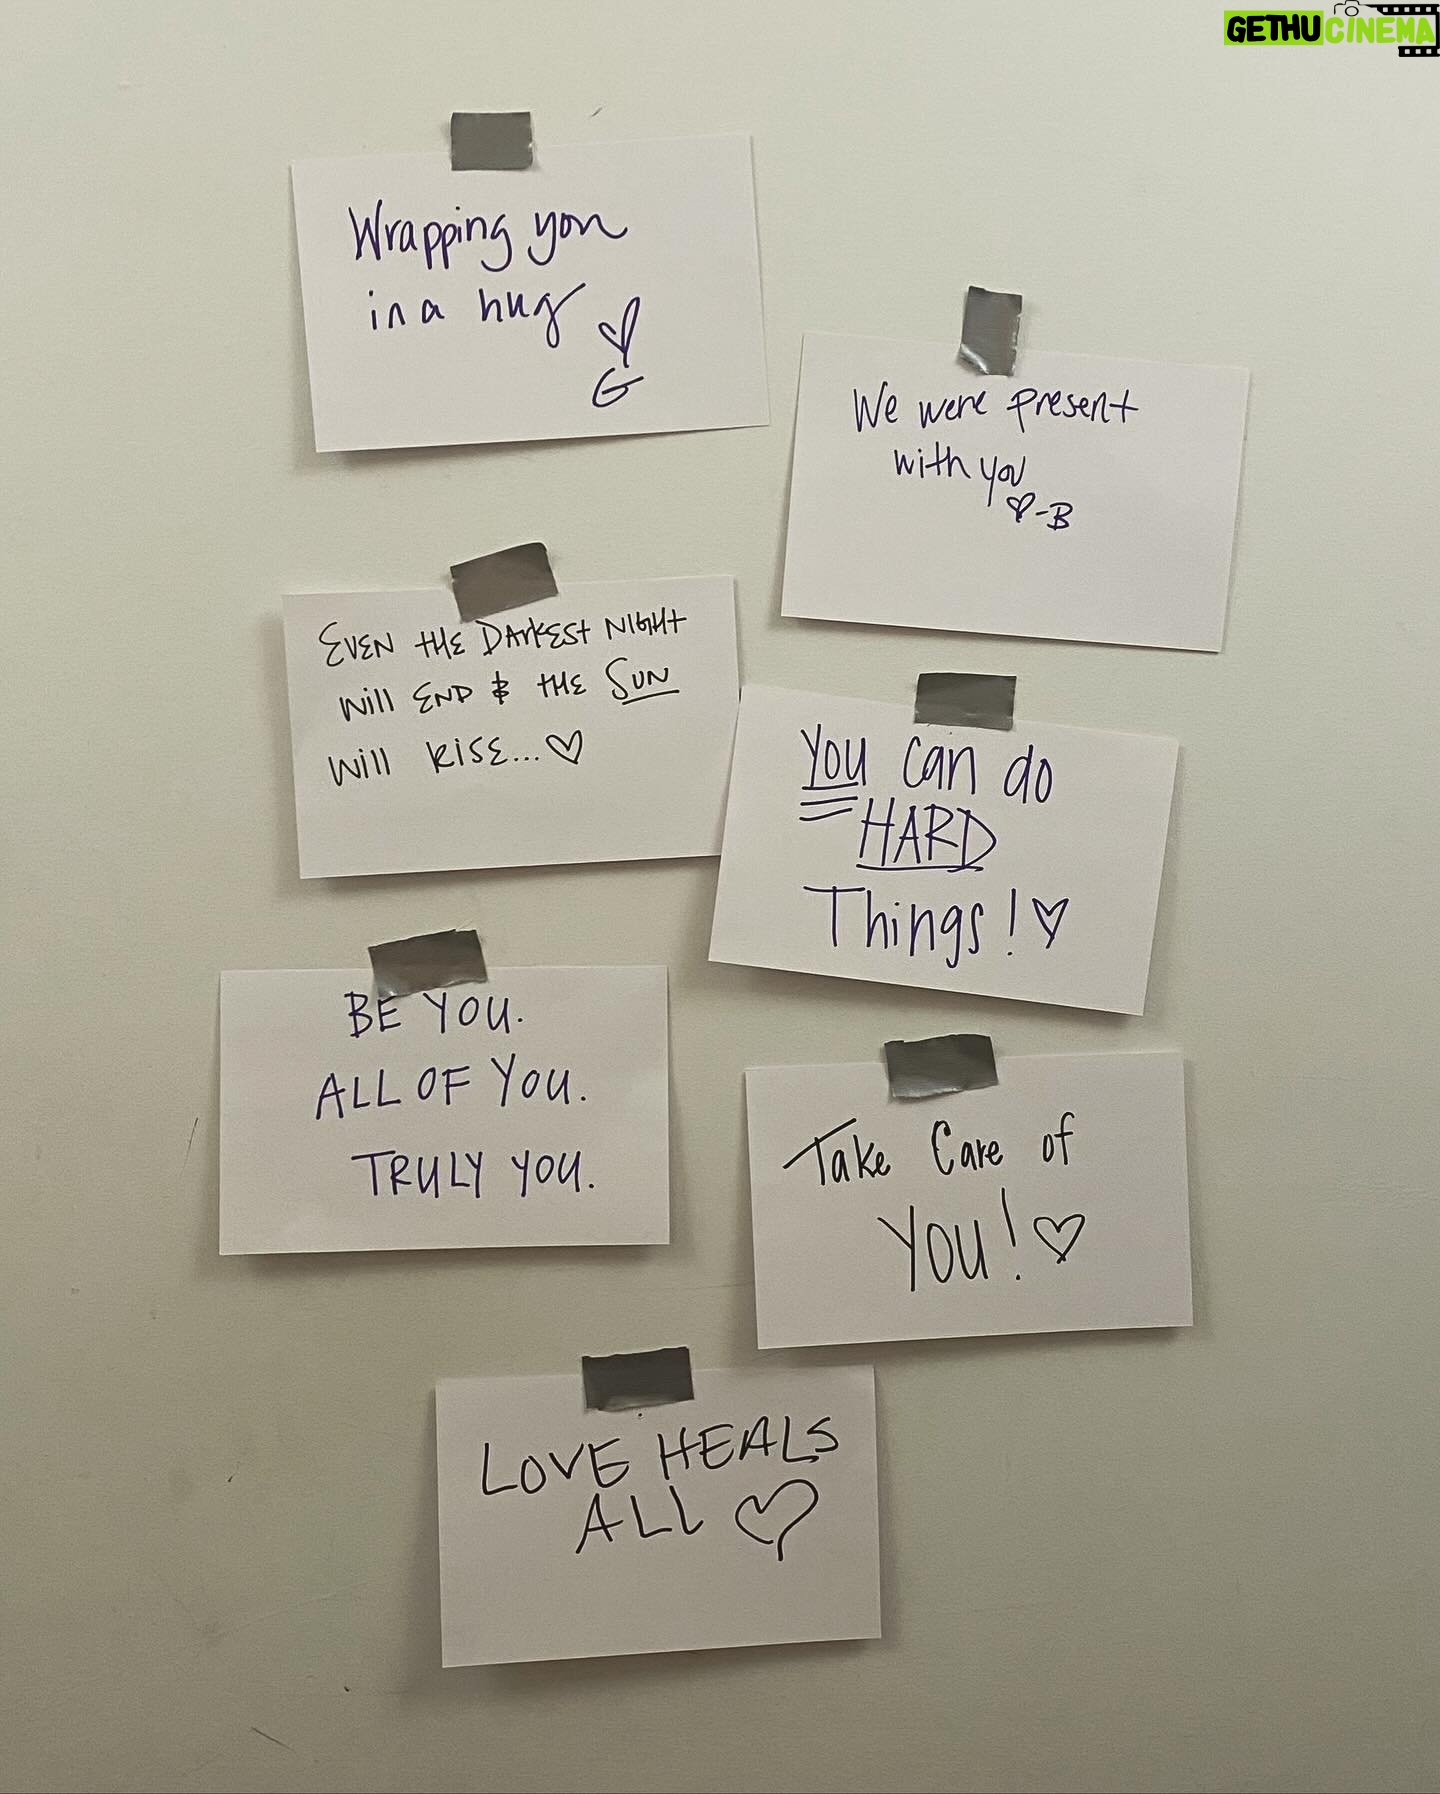 GETHUCINEMA
Wrapping you
in a hug
G
We were present
with you
-B
EVEN THE DARKEST NIGHT
will END & THE SUN
will RISE...
You can do
HARD
Things!
BE YOU.
ALL OF YOU.
TRULY YOU.
Take Care of
YOU!
LOVE HEALS
ALL